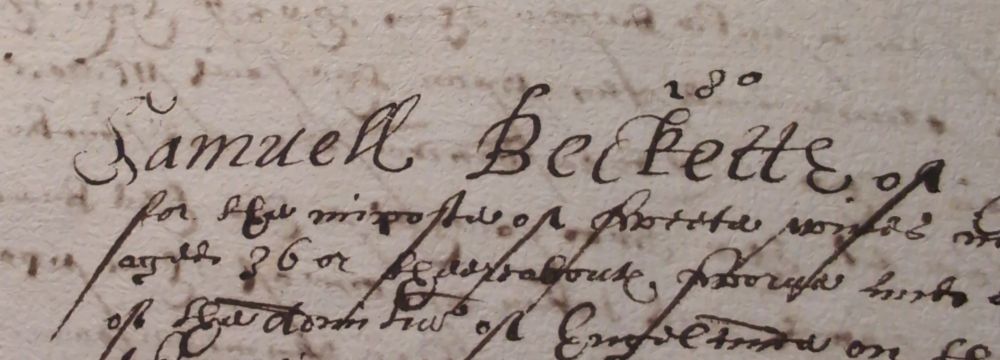 180
Samuell Beckette of
for the imposte of sweete wines
aged 36 or thereabouts sworne
of the Admĩtie of England on